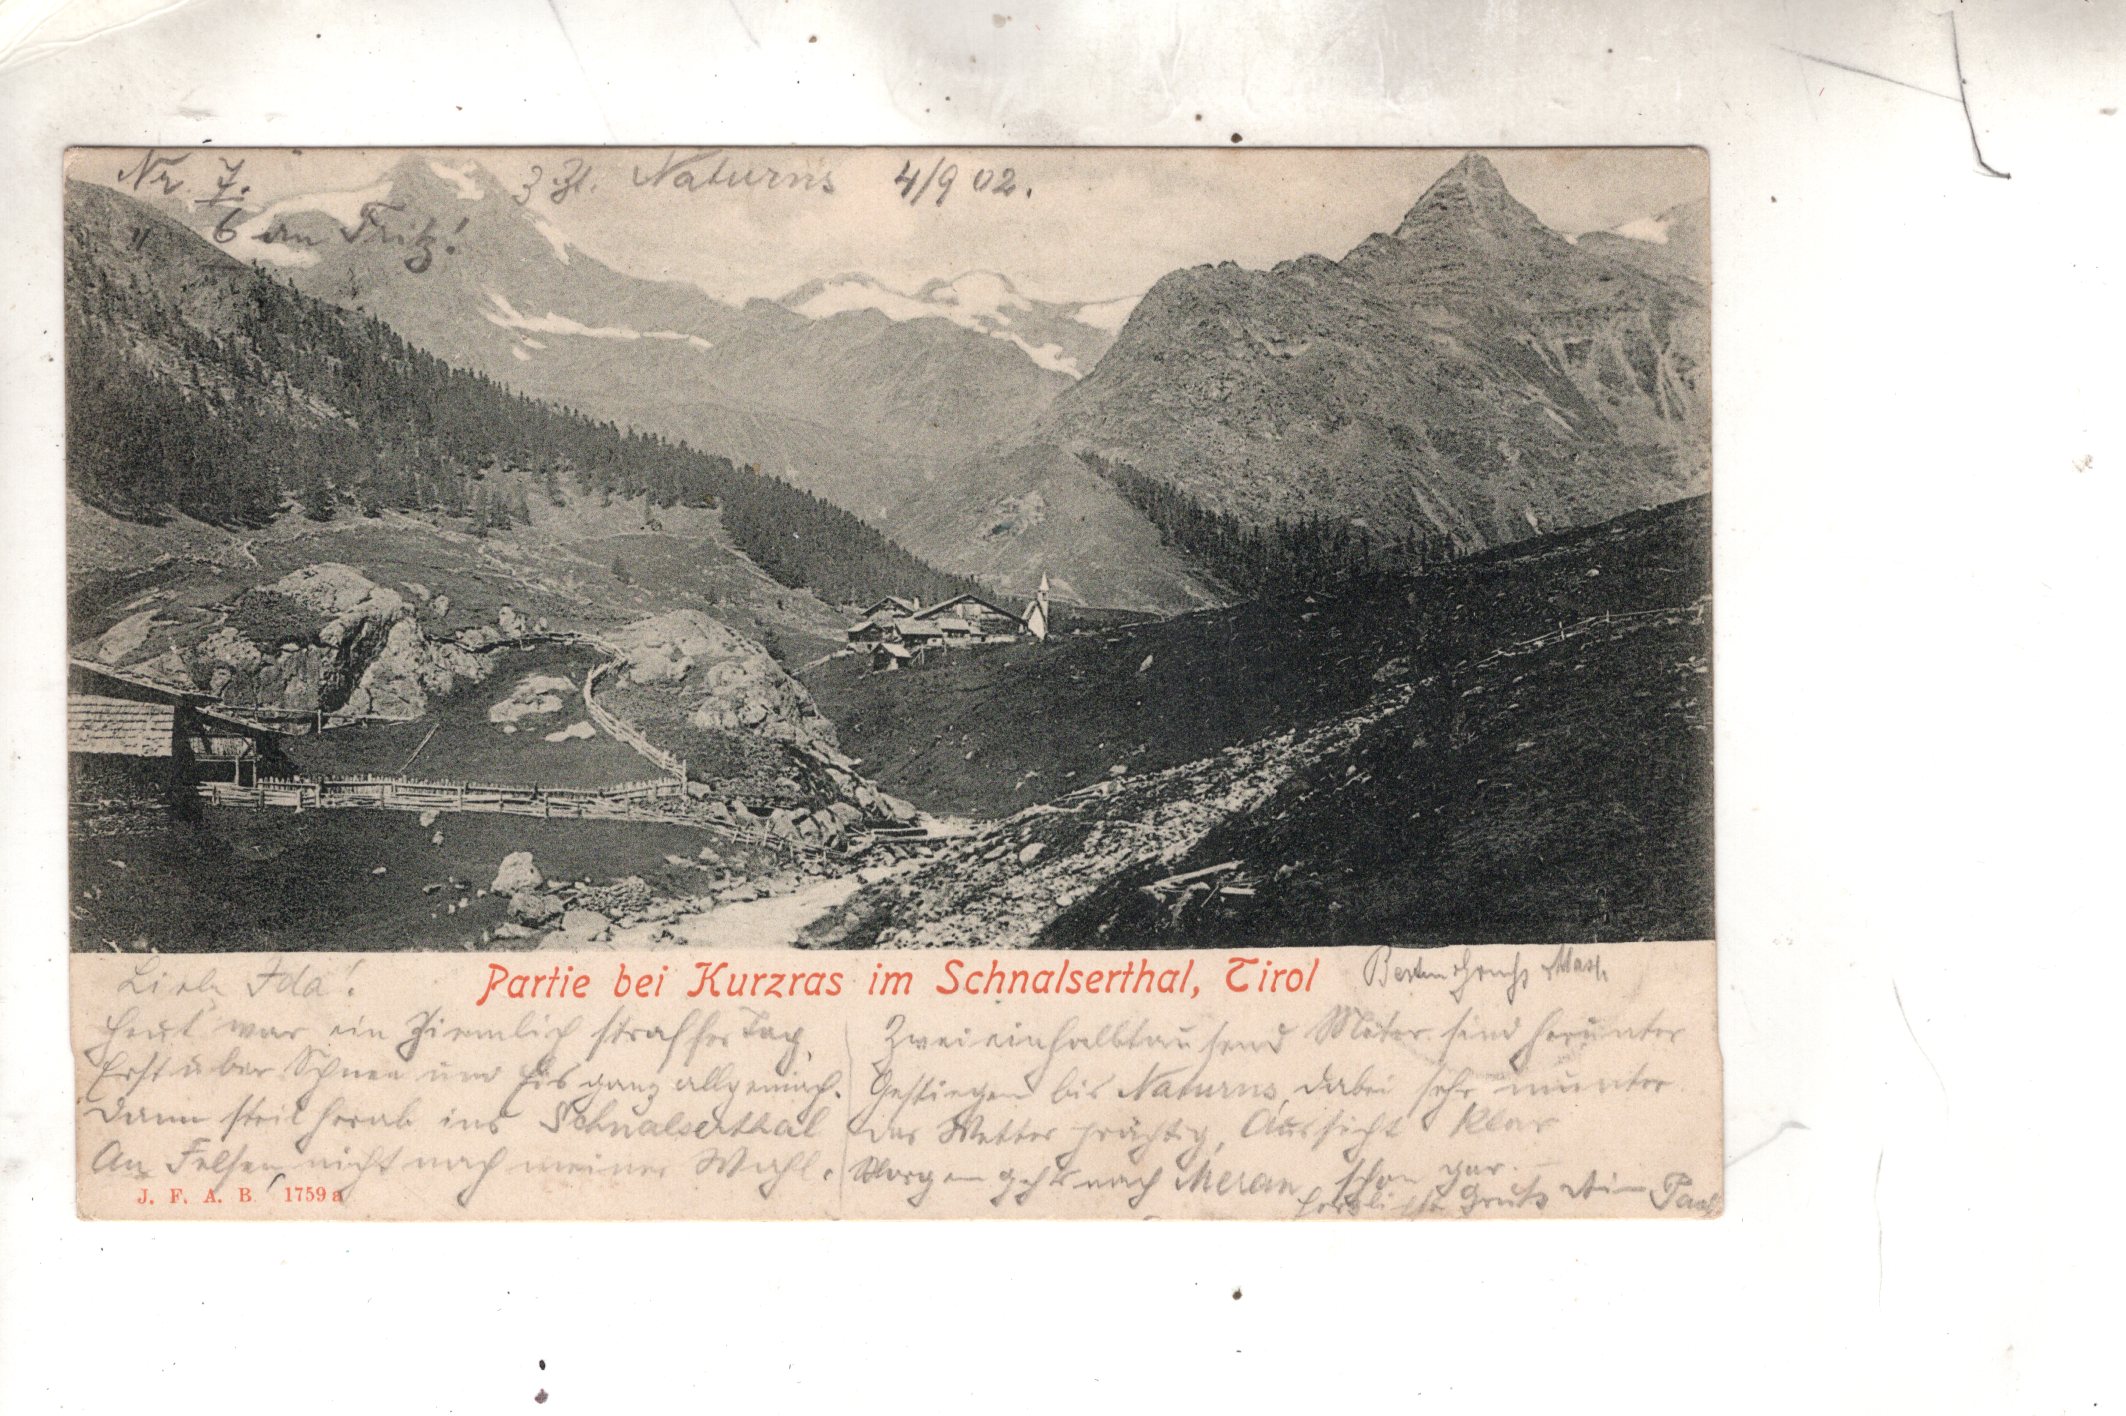 Nr. 7.
" 6 an Fritz!
3 Zt. Naturns 4/9 02.
Partie bei Kurzras im Schnalserthal, Tirol
Liebe Ida!
Heut war ein ziemlich straffer Tag,
Erst über Schnee und Eis ganz allgemach.
Dann steil herab ins Schnalserthal
An Felsen, nicht nach meiner Wahl.
Zwei einhalbtausend Meter sind herunter
Gestiegen bis Naturns, dabei sehr munter.
Das Wetter prächtig, Aussicht klar
Morgen gehts nach Meran schon gar.
Herzlichste Grüße Dein Paul
J. F. A. B. 1759 a